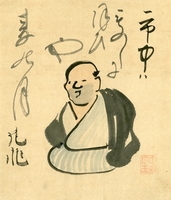 市中ハ
ものゝに
ほひ
や
夏の月
凡兆